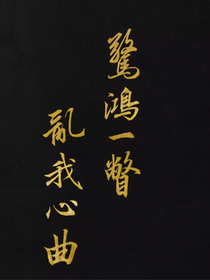 驚鴻一瞥
亂我心曲